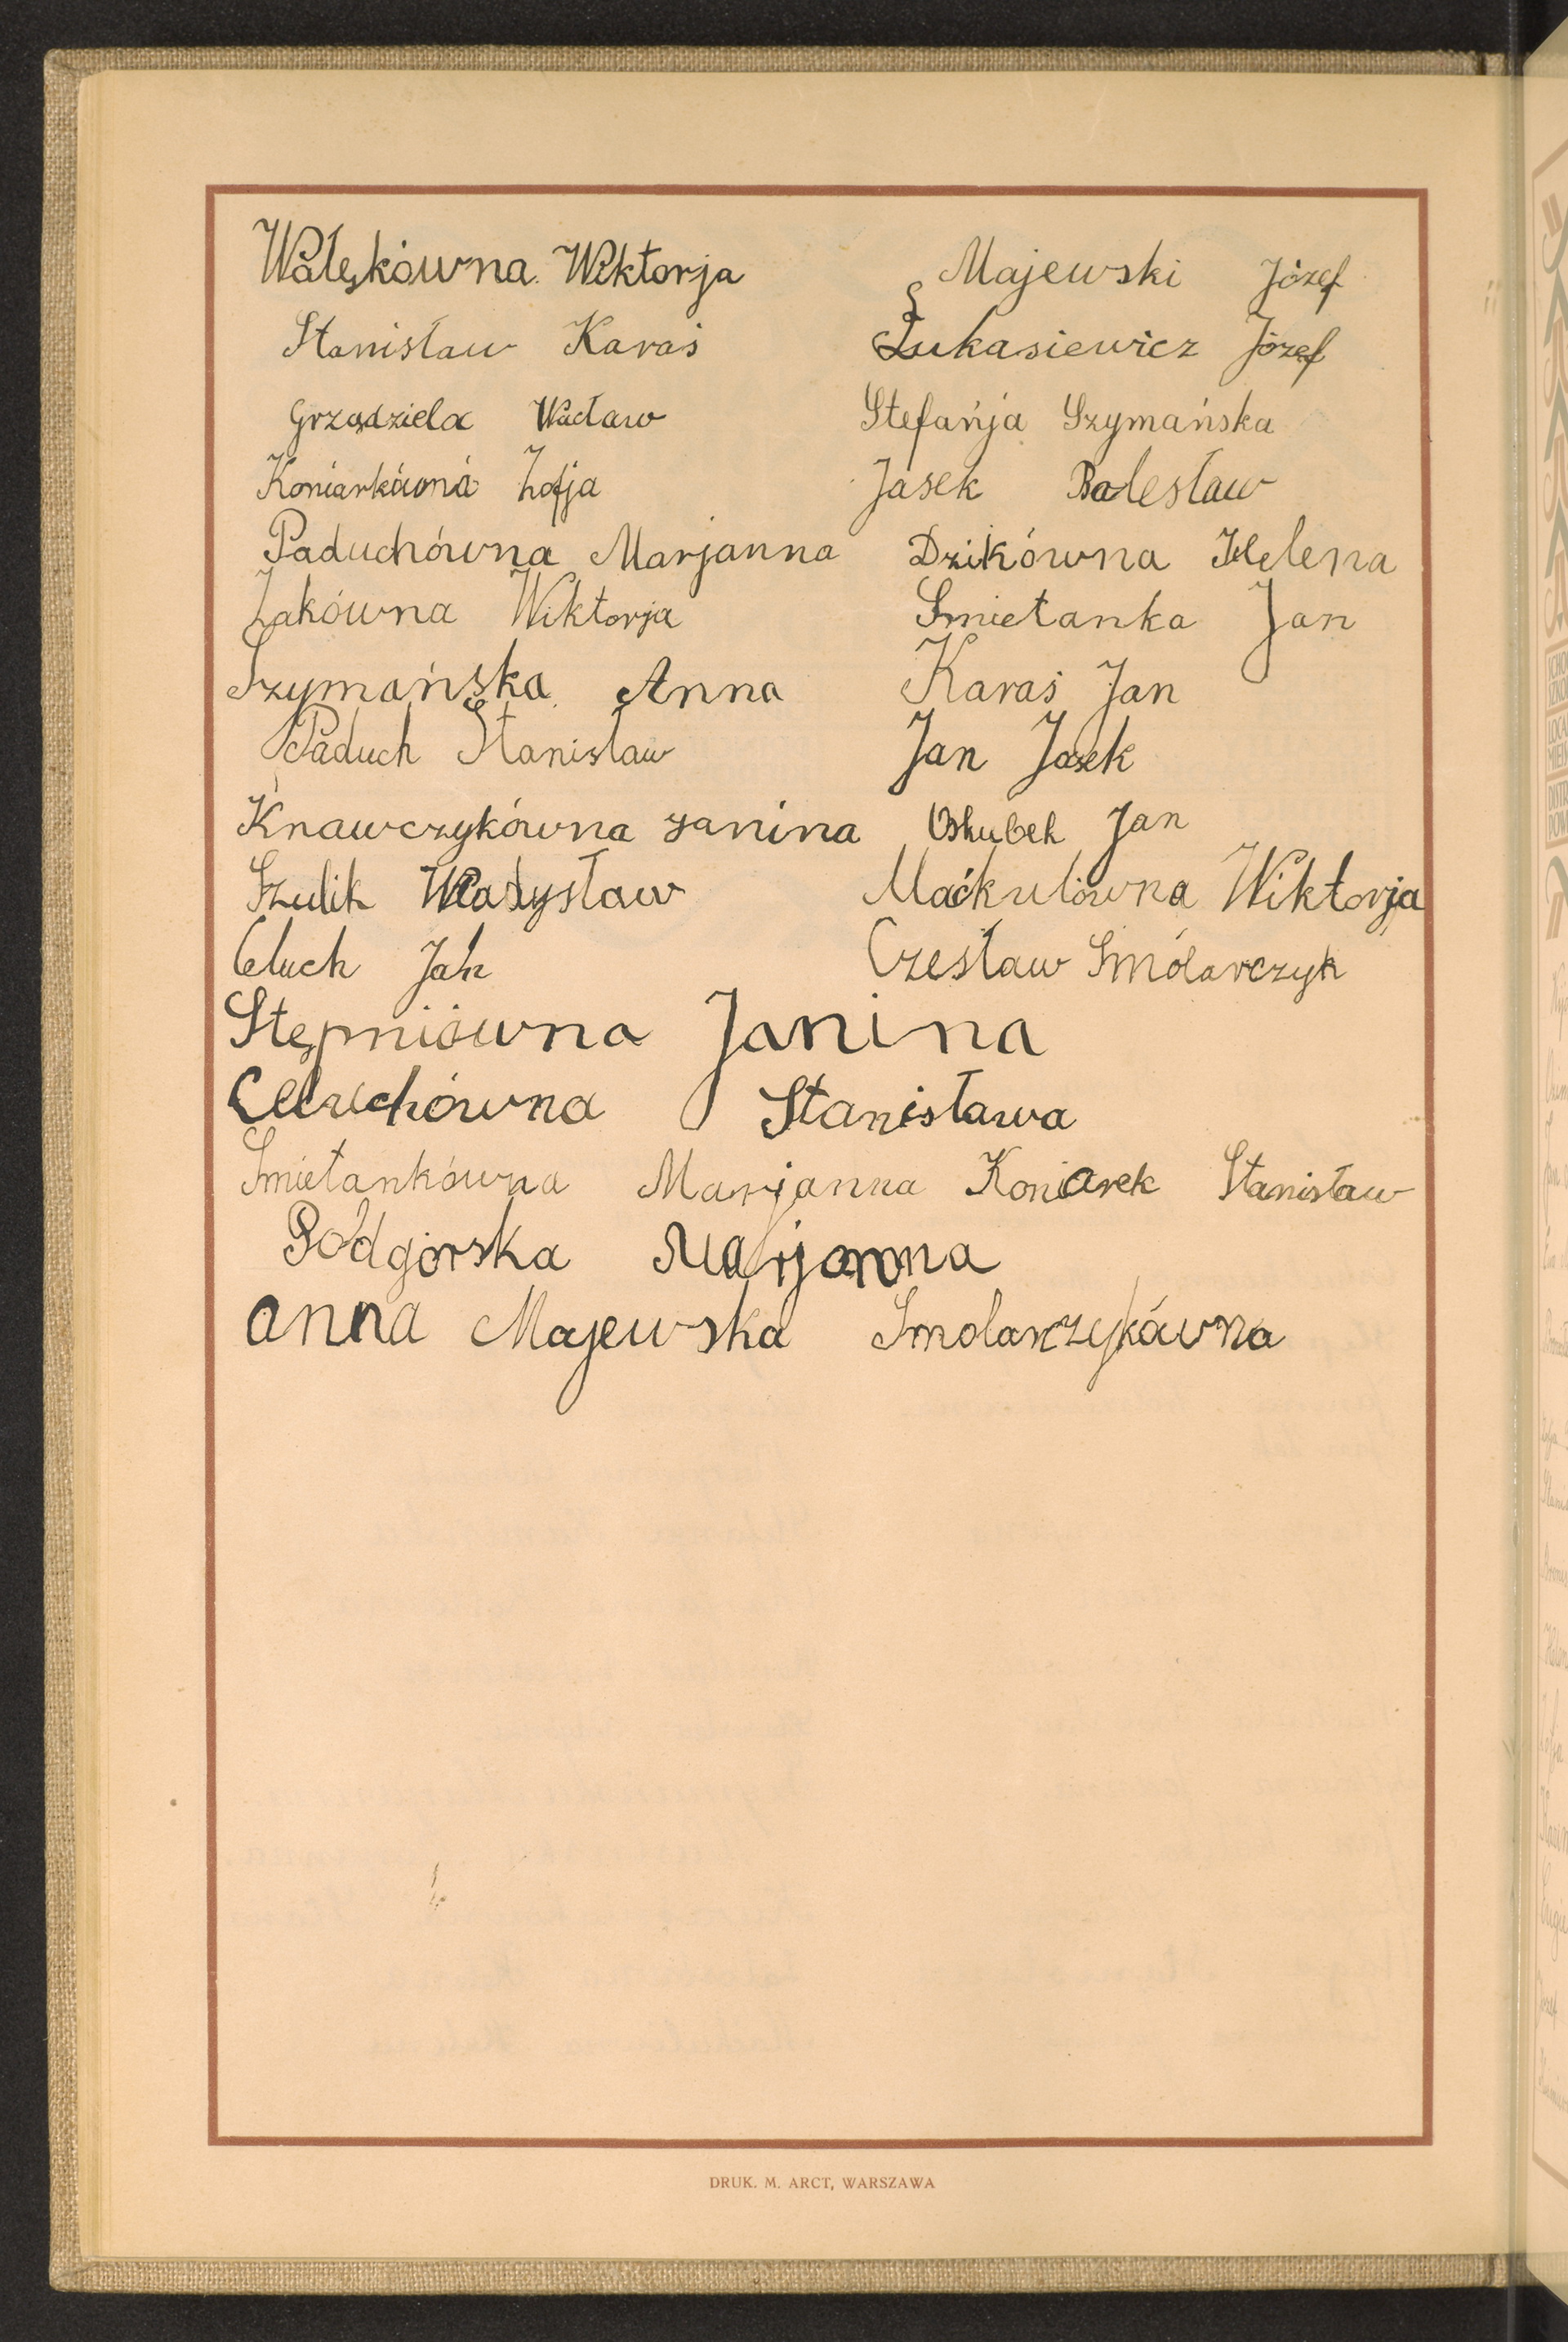 Wałękówna Wiktorja Majewski Józef
Stanisław Karaś Łukasiewicz Józef
Grządziela Wacław Stefańja Szymańska
Koniarkówna Zofja Jasek Bolesław
Paduchówna Marjanna Dzikówna Helena
Żakówna Wiktorja Śmietanka Jan
Szymańska Anna Karaś Jan
Paduch Stanisław Jan Jasek
Knawczykówna Janina Oskubek Jan
Szulik Władysław Maćkulówna Wiktorja
Celuch Jan Czesław Smolarczyk
Stępniówna Janina
Celuchówna Stanisława
Śmietankówna Marjanna Koniarek Stanisław
Podgórska Marjanna
Anna Majewska Smolarczykówna
DRUK. M. ARCT, WARSZAWA